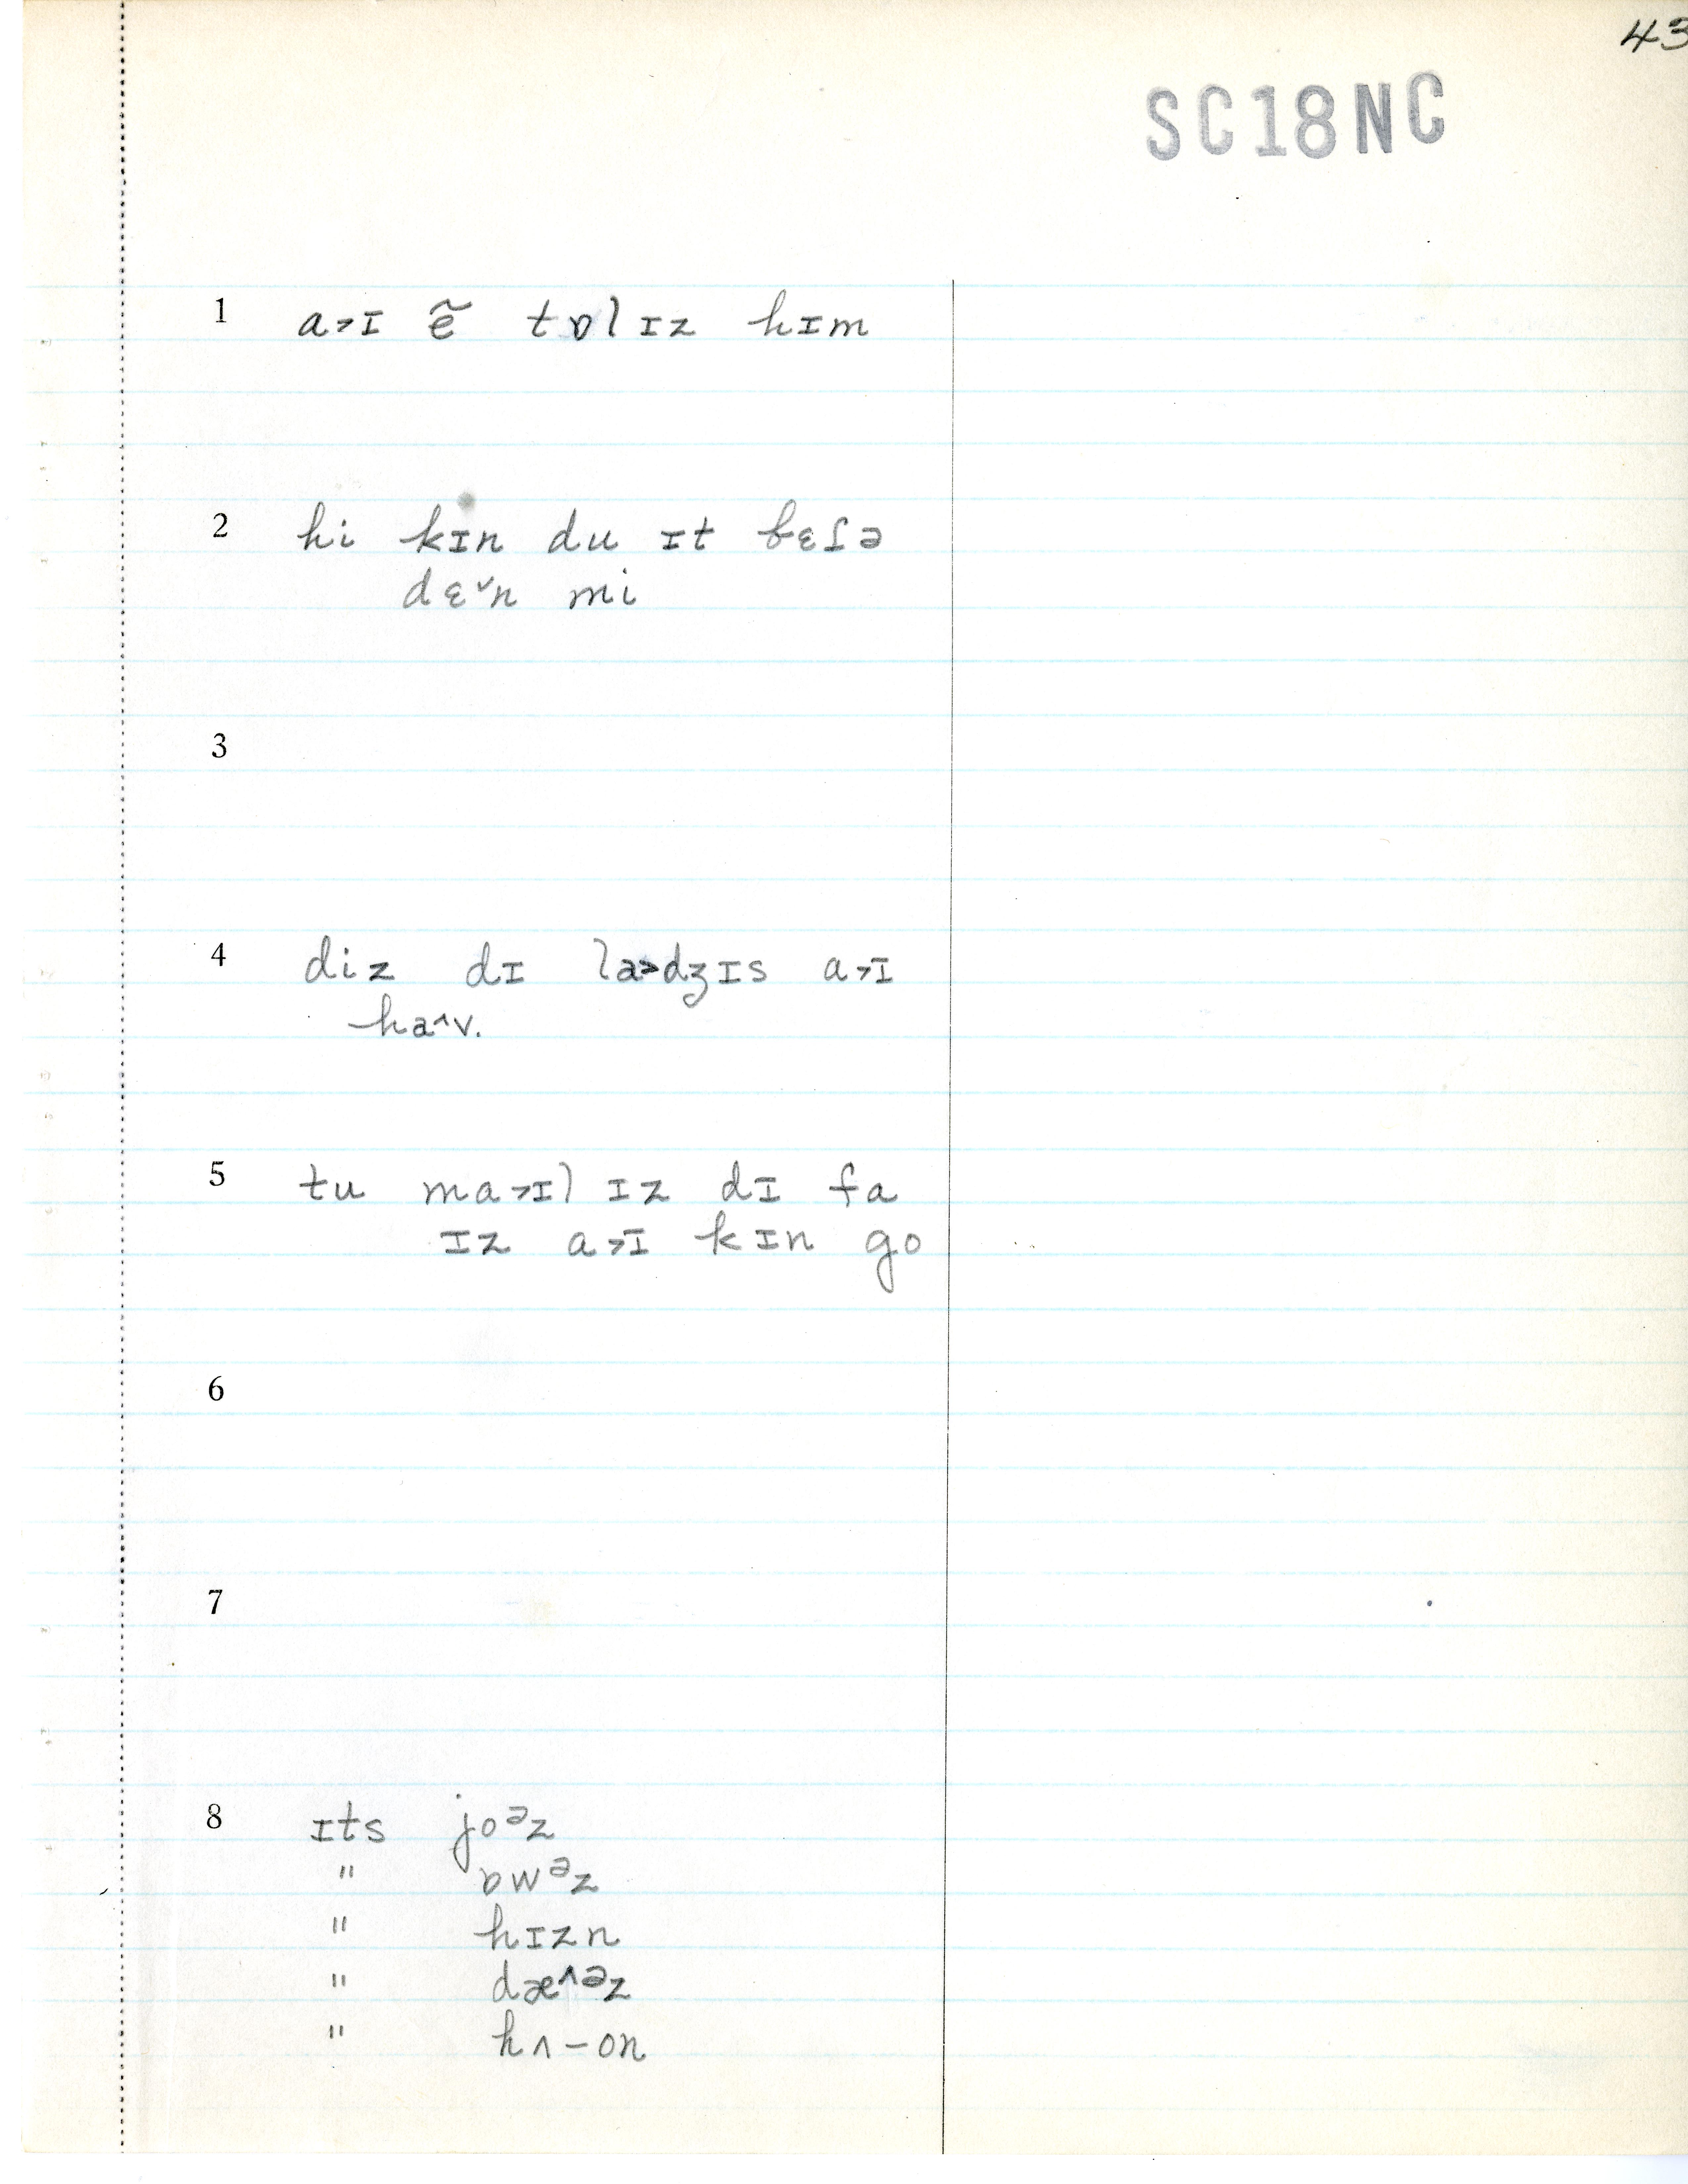 43
SC18NC
1 a˃ɪ ẽ tɒlɪz hɪm
2 hi kɪn du ɪt bɛſə
dɛ˅n mi
3
4 diz dɪ la˃dʒɪs a˃ɪ
ha˄v.
5 tu ma˃ɪl ɪz dɪ fa
ɪz a˃ɪ kɪn go
6
7
8 ɪts joᵊz
" ɒwᵊz
" hɪzn
" dæ˄ᵊz
" hʌ-on